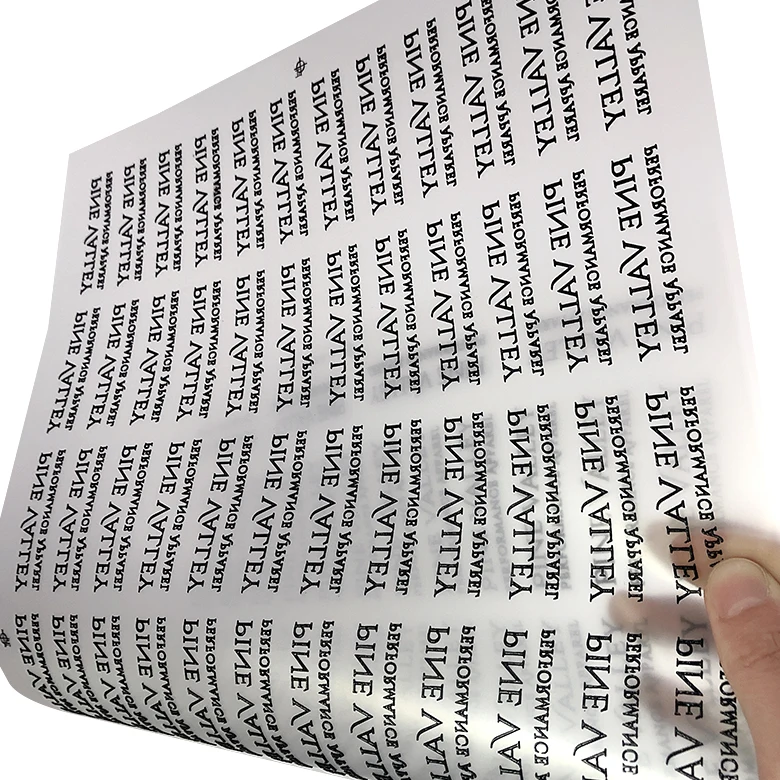 PINE VALLEY
PERFORMANCE APPAREL
PINE VALLEY
PERFORMANCE APPAREL
PINE VALLEY
PERFORMANCE APPAREL
PINE VALLEY
PERFORMANCE APPAREL
PINE VALLEY
PERFORMANCE APPAREL
PINE VALLEY
PERFORMANCE APPAREL
PINE VALLEY
PERFORMANCE APPAREL
PINE VALLEY
PERFORMANCE APPAREL
PINE VALLEY
PERFORMANCE APPAREL
PINE VALLEY
PERFORMANCE APPAREL
VALLEY
APPAREL
VALLEY
APPAREL
PINE VALLEY
PERFORMANCE APPAREL
PINE VALLEY
PERFORMANCE APPAREL
PINE VALLEY
PERFORMANCE APPAREL
PINE VALLEY
PERFORMANCE APPAREL
PINE VALLEY
PERFORMANCE APPAREL
PINE VALLEY
PERFORMANCE APPAREL
PINE VALLEY
PERFORMANCE APPAREL
PINE VALLEY
PERFORMANCE APPAREL
PINE VALLEY
PERFORMANCE APPAREL
PINE VALLEY
PERFORMANCE APPAREL
PINE VALLEY
PERFORMANCE APPAREL
PINE VALLEY
PERFORMANCE APPAREL
PINE VALLEY
PERFORMANCE APPAREL
PINE VALLEY
PERFORMANCE APPAREL
PINE VALLEY
PERFORMANCE APPAREL
PINE VALLEY
PERFORMANCE APPAREL
PINE VALLEY
PERFORMANCE APPAREL
PINE VALLEY
PERFORMANCE APPAREL
PINE VALLEY
PERFORMANCE APPAREL
PINE VALLEY
PERFORMANCE APPAREL
PINE VALLEY
PERFORMANCE APPAREL
PINE VALLEY
PERFORMANCE APPAREL
PINE VALLEY
PERFORMANCE APPAREL
PINE VALLEY
PERFORMANCE APPAREL
PINE
PERFORMANCE
PINE
PERFORMANCE
PINE
PERFORMANCE
PINE
PERFORMANCE
PINE
PERFORMANCE
PINE
PERFORMANCE
PINE
PERFORMANCE
PINE
PERFORMANCE
PINE
PERFORMANCE
PINE
PERFORMANCE
PINE
PERFORMANCE
PINE